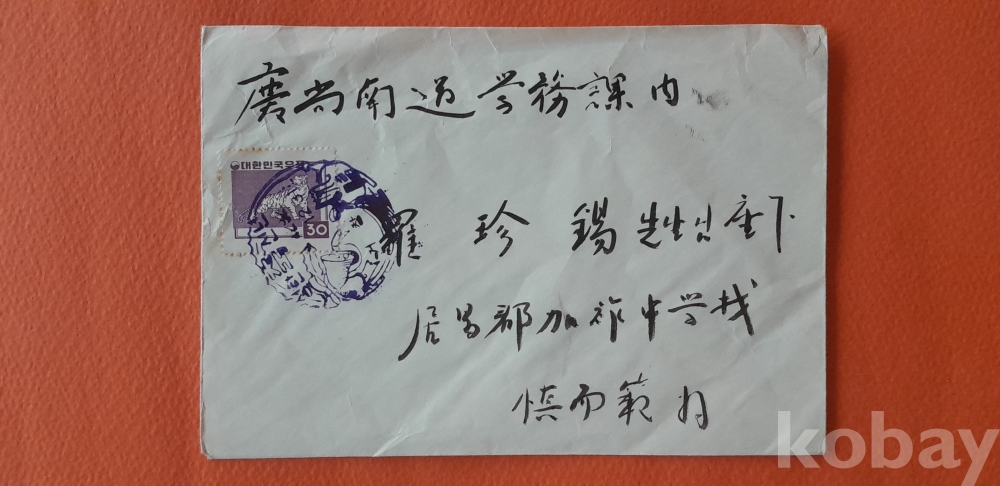 慶尚南道学務課内
대한민국우표
30
羅 珍 錫 先生님 座下
居昌郡加祚中学校
慎而範
kobay